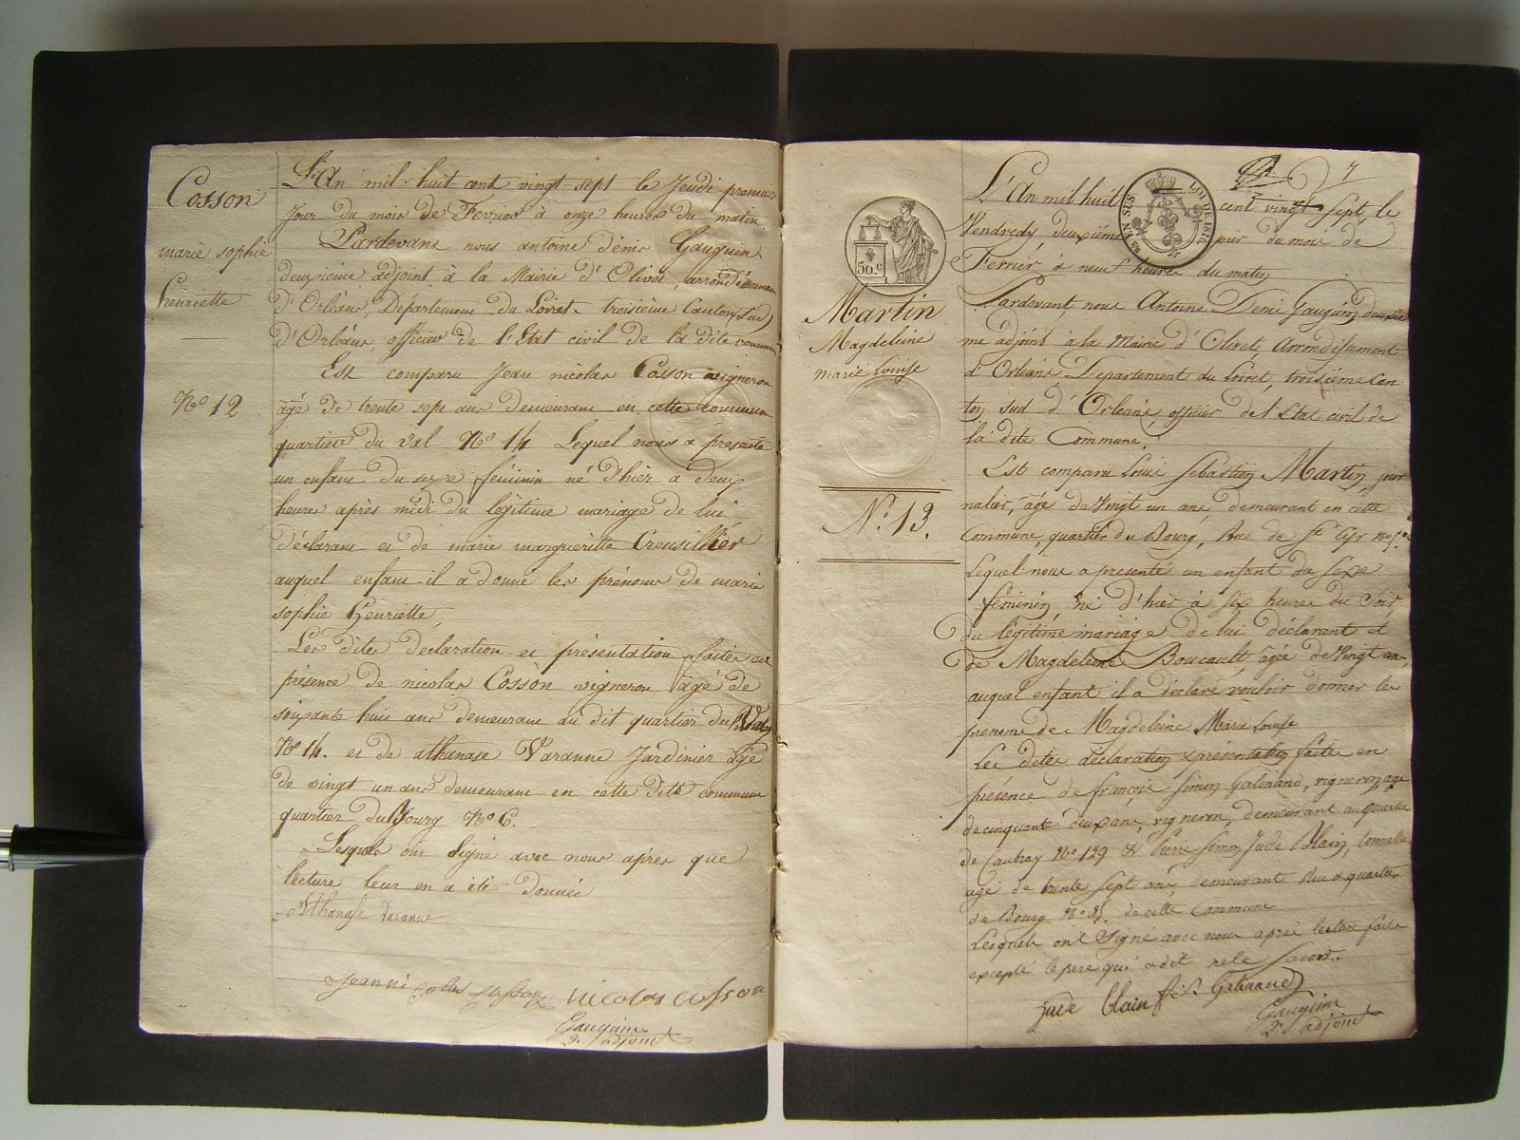 Cosson
marie sophie
henriette
No 12
L'An mil-huit cent vingt-sept le Jeudi premier
Jour du mois de Fevrier à onze heures du matin.
Pardevant nous antoine dénis Gauguin
deuxieme adjoint à la Mairie d'Olivet, arrondissement
D'Orléans, Departement du Loiret troisième Canton Sud
d'Orléans, officier de l'Etat civil de la dite commune
Est comparu Jean nicolas Cosson vigneron
âgé de trente sept ans demeurant en cette commune
quartier du val No 14 Lequel nous a présenté
un enfant du sexe féminin né d'hier à deux
heures après midi du légitime mariage de lui
déclarant et de marie marguerittte Creusillier
auquel enfant il a donné les prénoms de marie
sophie henriette,
Les dites declaration et présentation faites en
présence de nicolas Cosson vigneron âgé de
soixante huit ans demeurant au dit quartier du Val
No 14. et de athanase Varanne Jardinier âgé
de vingt un ans demeurant en cette dite commune
quartier du Bourg No 6.
Lesquels ont Signé avec nous après que
lecture leur en a été donnée
Athanase varanne
Jean nicolas cosson nicolas cosson
Gauguin
2e adjoint
7
50 c
Martin
Magdeleine
marie Louise
No 13.
L'An mil huit cent vingt Sept, le
Vendredy deuxiéme jour du mois de
Fevrier à neuf heures du matin
Pardevant nous Antoine Deni Gauguin deuxie
me adjoint à la Mairie d'Olivet, Arrondissement
d'Orléans Departement du Loiret, troisiéme Can
ton sud d'Orleans, officier de l'Etat civil de
la dite Commune.
Est comparu Louis Sébastien Martin, jour
nalier, âgé de Vingt un ans, demeurant en cette
Commune, quartier du Bourg, Rue de St Cyr
Lequel nous a présenté un enfant du Sexe
féminin, né d'hier à six heures du Soir,
du légitime mariage de lui déclarant et
de Magdeleine Boucault âgée de Vingt ans,
auquel enfant il a déclaré vouloir donner les
prenoms de Magdeleine Marie Louise
Les dites déclaration & présentation faite en
présence de françois Simon Galinand, vigneron agé
de cinquante deux ans, vigneron, demeurant au quartier
de Caubray No 129 & Pierre Simon Jude Blain, tonnelier
agé de trente Sept ans, demeurant Rue & quartier
du Bourg de cette Commune
Lesquels ont Signé avec nous après lecture faite
excepté le pere qui a dit ne le Savoir.
jude blain fs. Galinand
Gauguin
2e adjoint